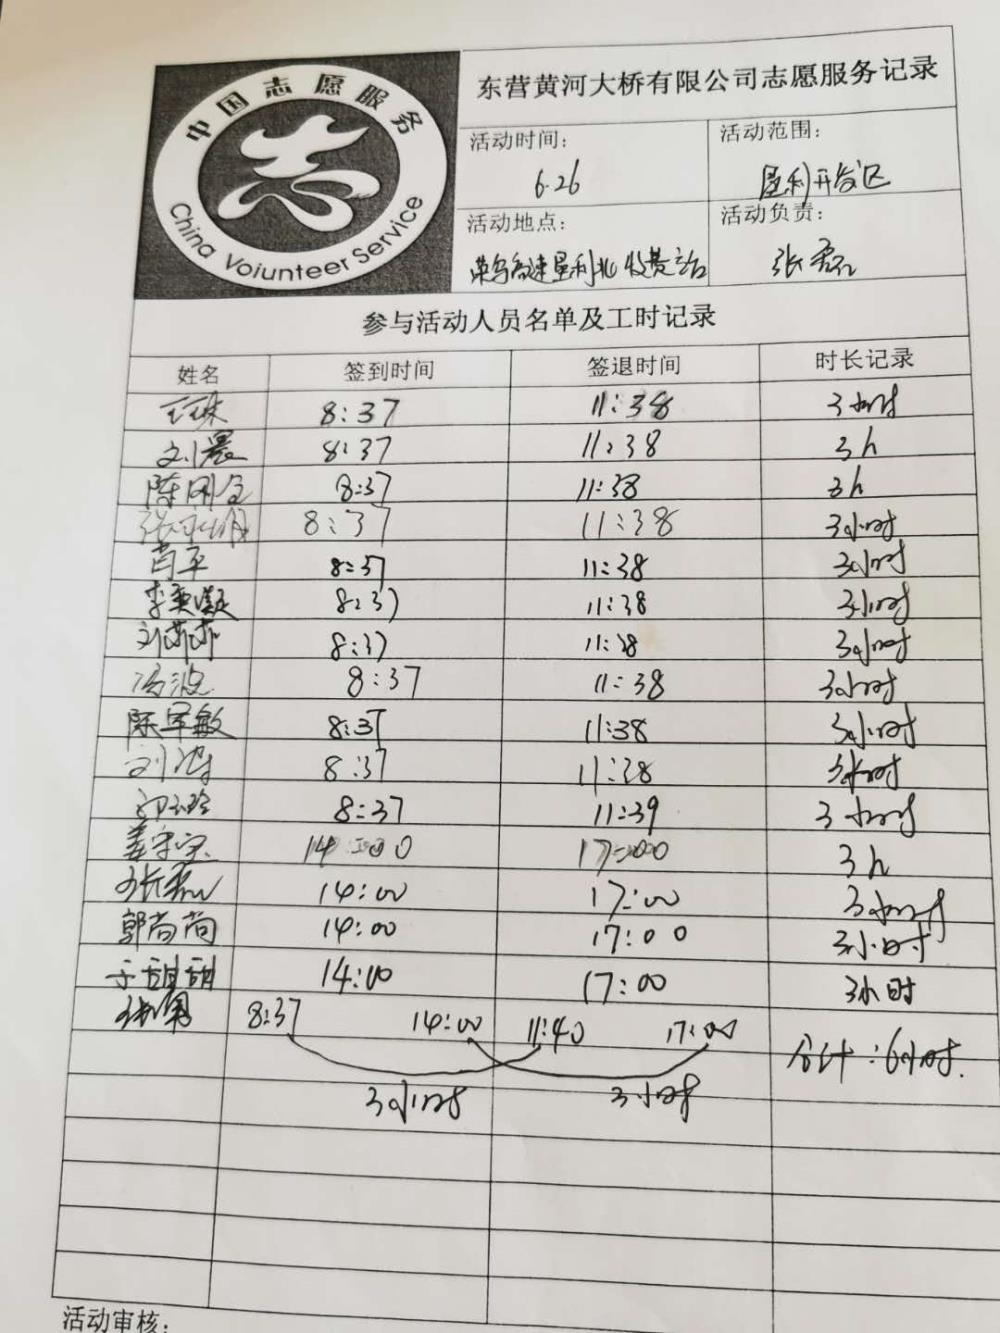 中国志愿服务
China Voiunteer Service
东营黄河大桥有限公司志愿服务记录
活动时间：
6.26
活动范围：
垦利开发区
活动地点：
荣乌高速垦利北收费站
活动负责：
张磊
参与活动人员名单及工时记录
姓名 签到时间 签退时间 时长记录
8:37 11:38 3小时
刘晨 8:37 11:38 3h
陈刚 8:37 11:38 3h
张 8:37 11:38 3小时
肖平 8:37 11:38 3小时
李奕凝 8:37 11:38 3小时
刘莎莎 8:37 11:38 3小时
冯波 8:37 11:38 3小时
陈军敏 8:37 11:38 3小时
刘涛 8:37 11:38 3小时
8:37 11:39 3小时
14:00 17:00 3h
张磊 14:00 17:00 3小时
郭尚尚 14:00 17:00 3小时
于甜甜 14:00 17:00 3小时
8:37 14:00 11:40 17:00
合计:6小时.
3小时 3小时
活动审核：